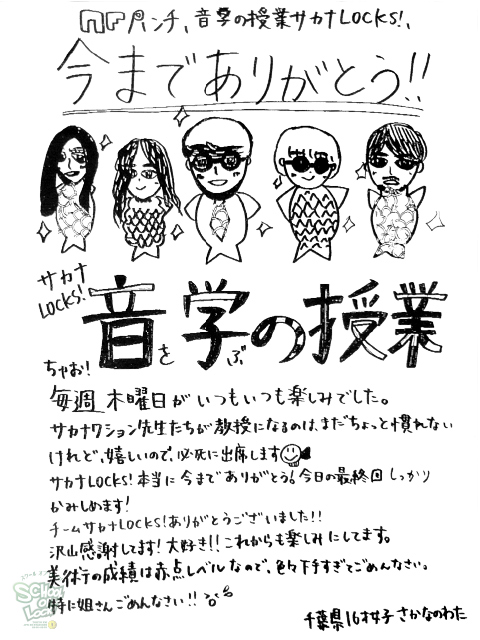 NFパンチ、音学の授業サカナLOCKS!、
今までありがとう!!
サカナ
LOCKS!
音を学ぶの授業
ちゃお!
毎週 木曜日が いつもいつも楽しみでした。
サカナクション先生たちが教授になるのは、まだちょっと慣れない
けれど、嬉しいので、必死に出席します
サカナLOCKS!本当に今までありがとう。今日の最終回しっかり
かみしめます!
チームサカナLOCKS!ありがとうございました!!
沢山感謝してます!大好き!!これからも楽しみにしてます。
美術の成績は赤点レベルなので、色々下手すぎてごめんなさい。
特に姐さんごめんなさい!!
千葉県16才女子 さかなのわた
SCHOOL
OF
LOCK!